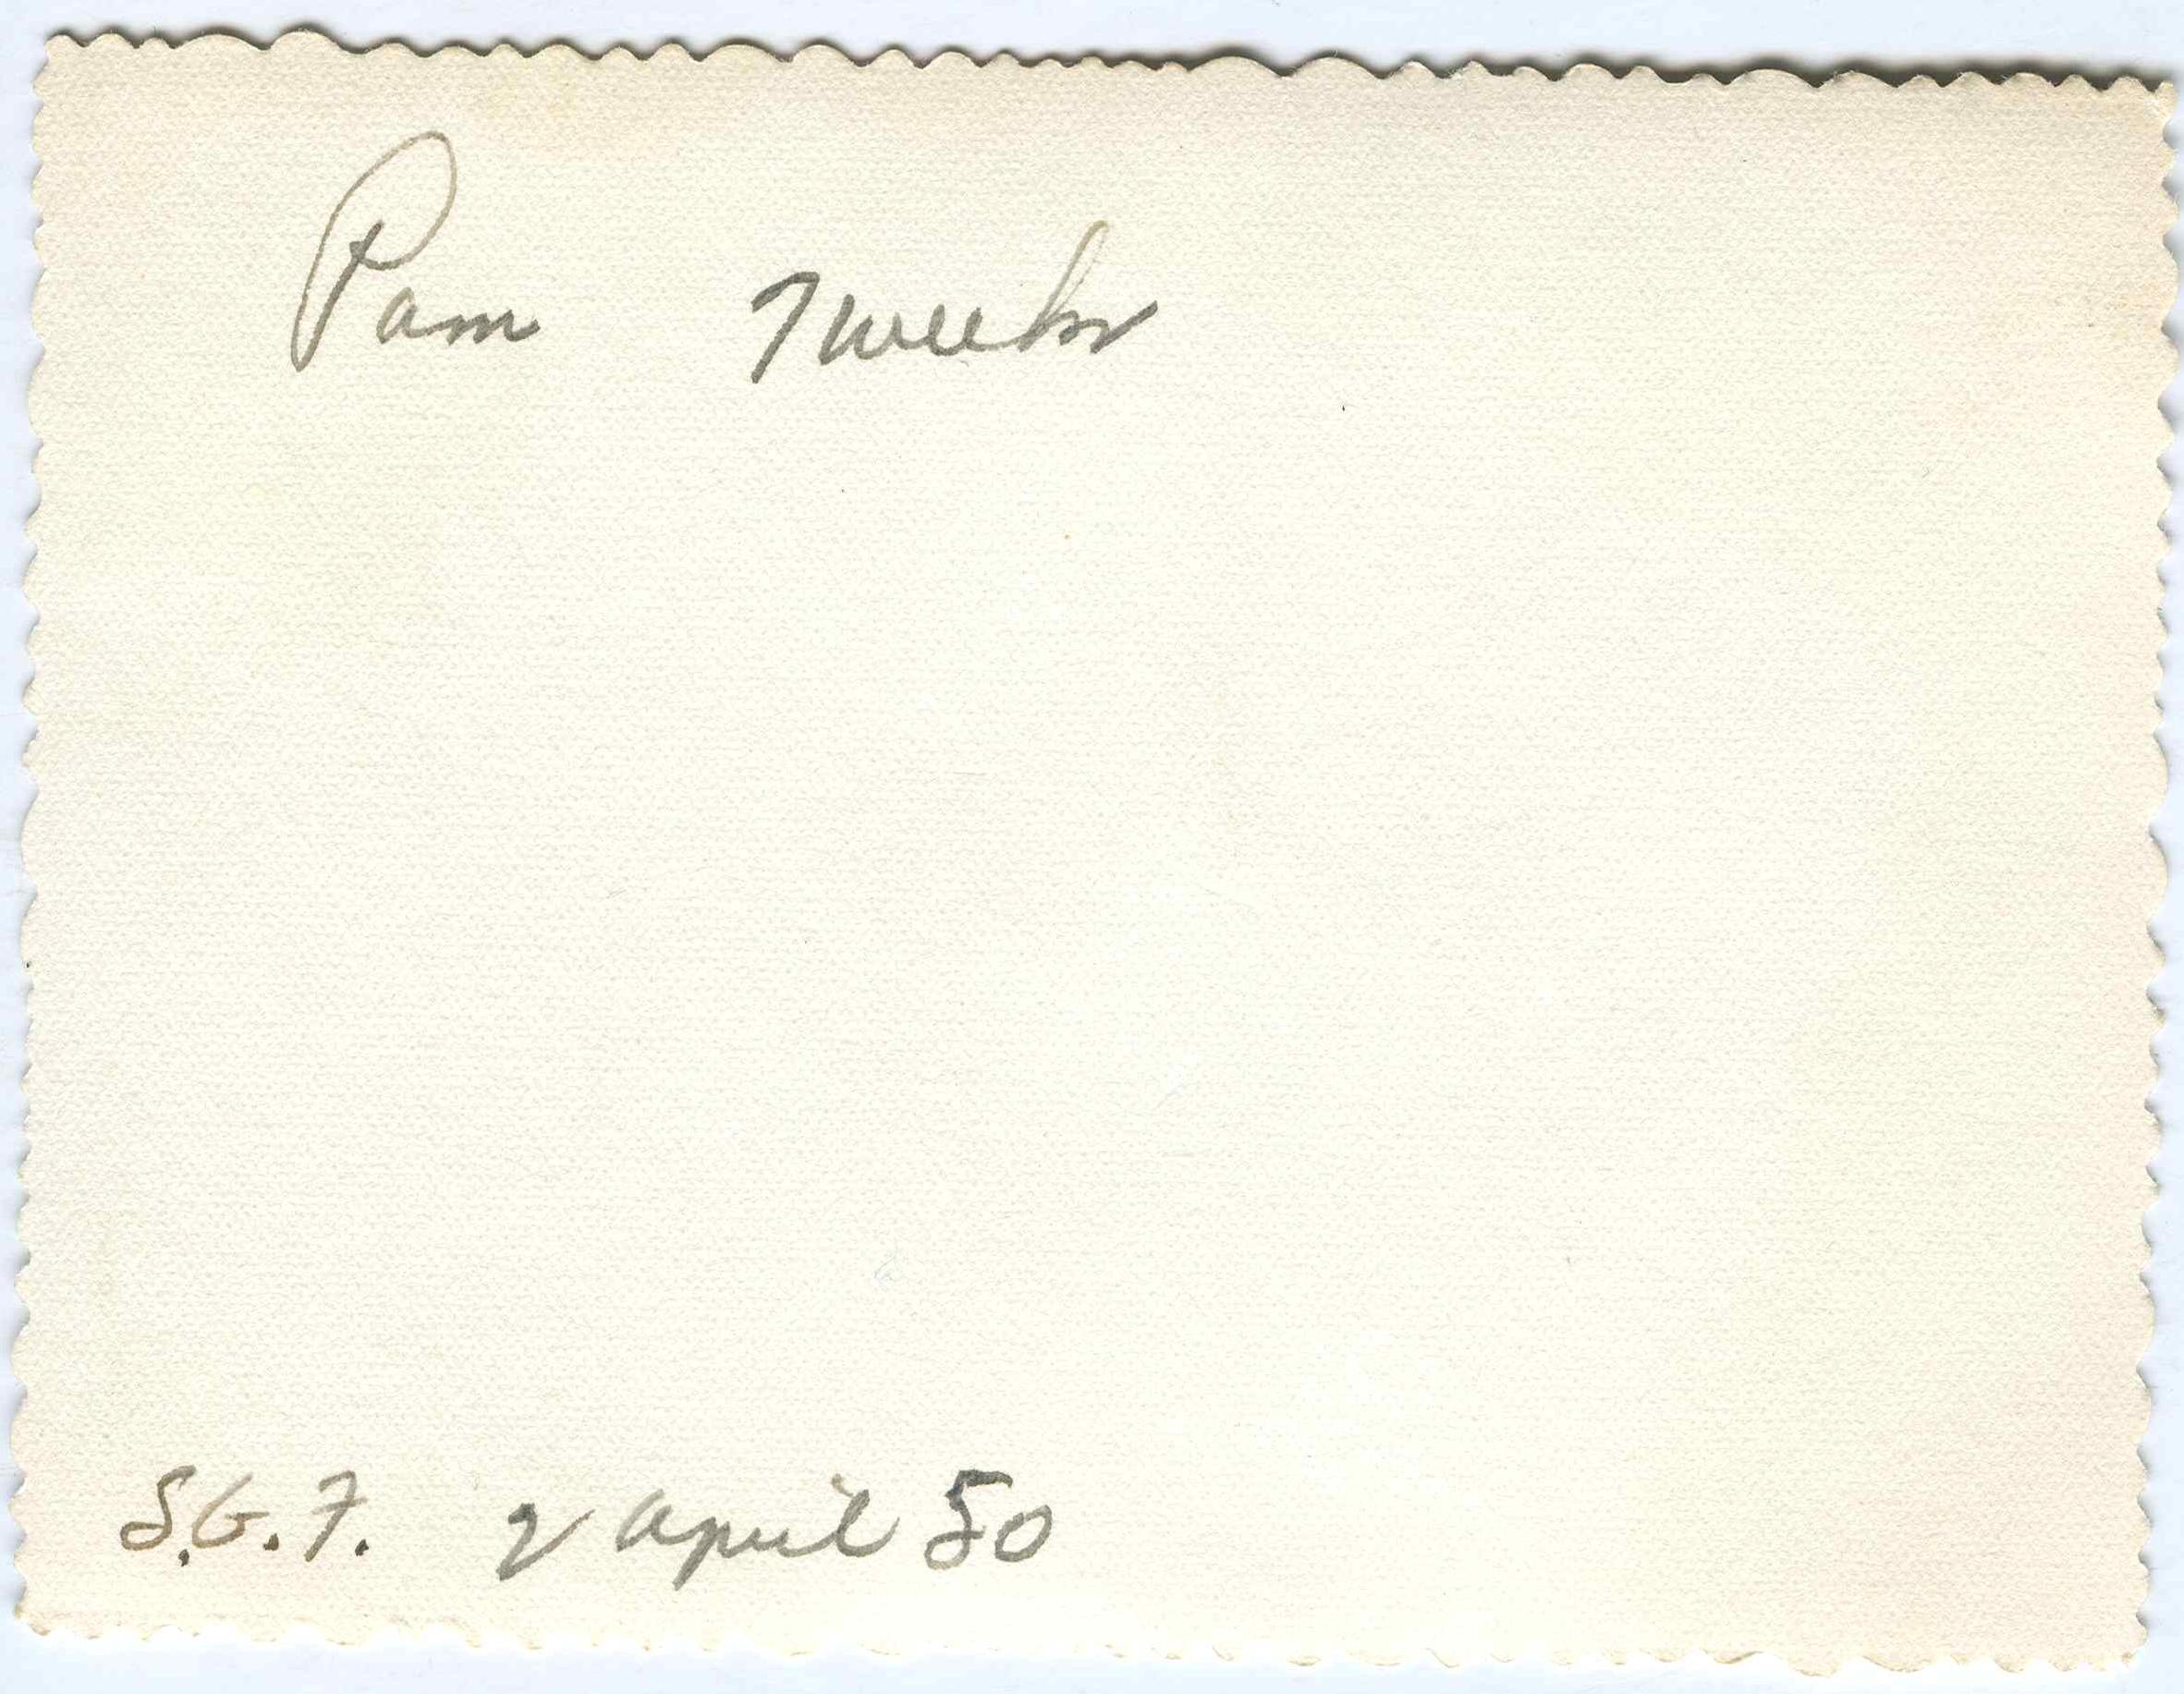 Pam 7 weeks
S.G.F. 2 april 50